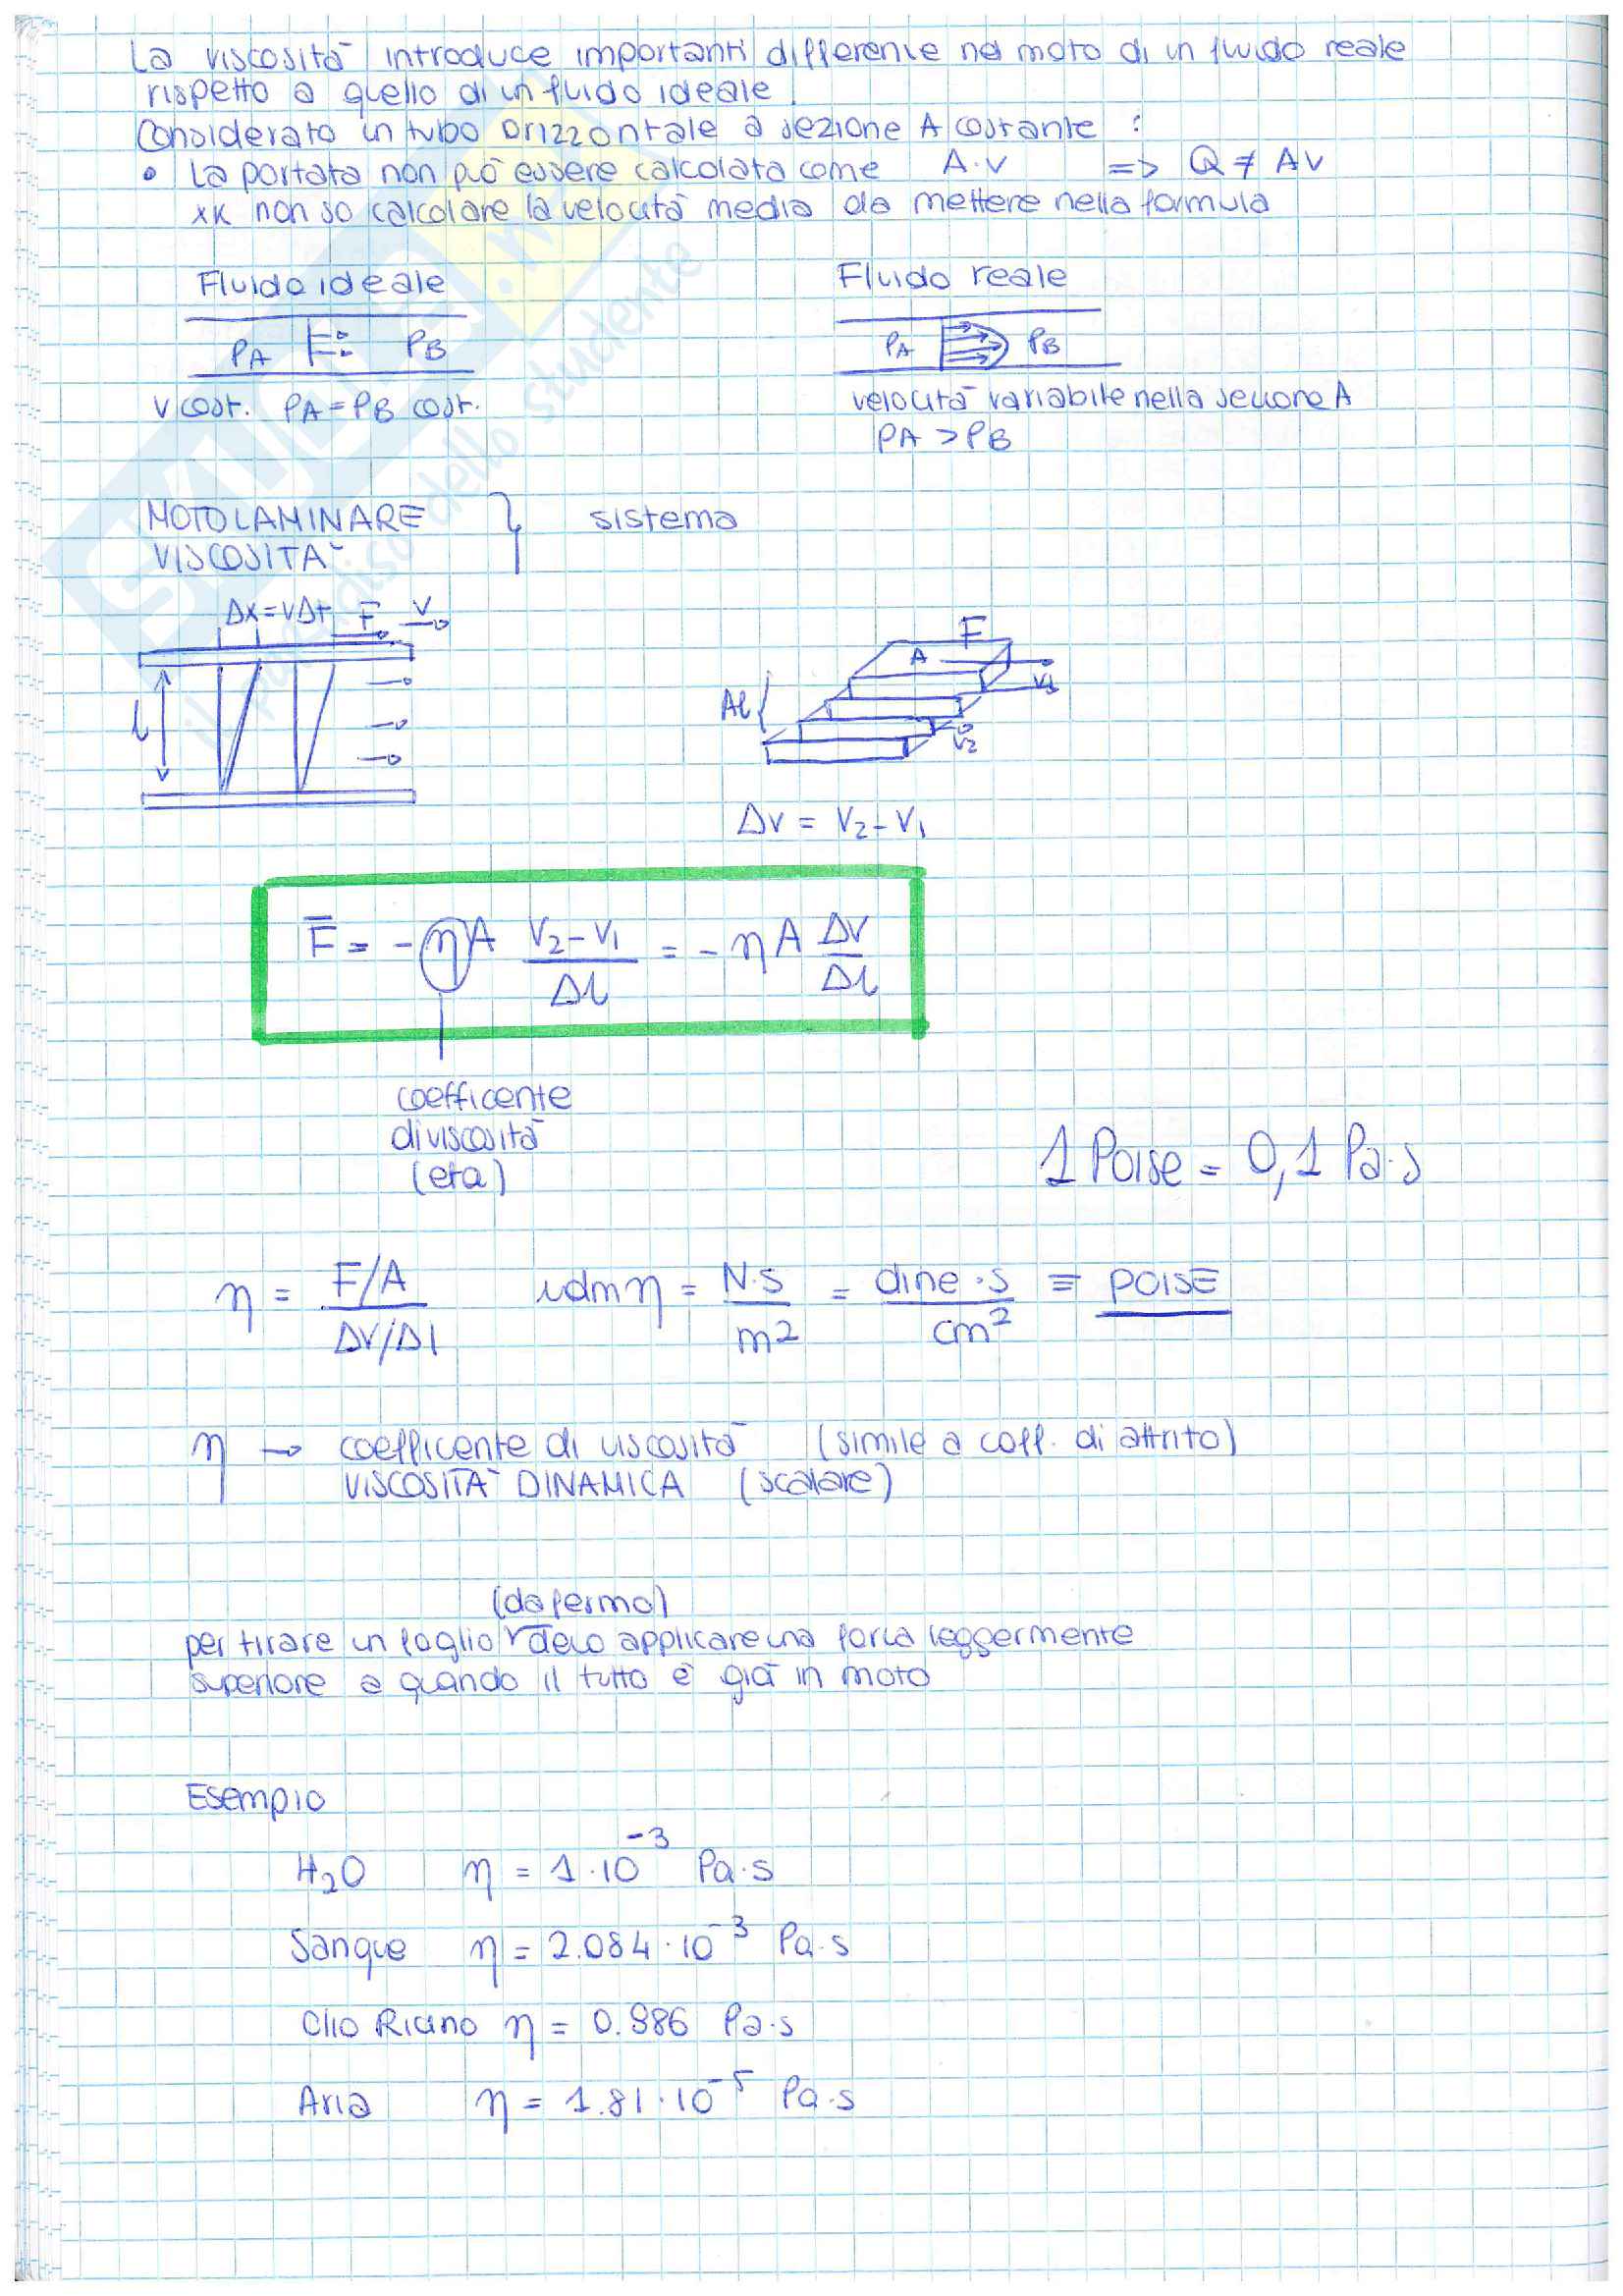 La viscosità introduce importanti differenze nel moto di un fluido reale
rispetto a quello di un fluido ideale
Considerato un tubo orizzontale a sezione A costante :
• La portata non può essere calcolata come A·v => Q ≠ Av
xk non so calcolare la velocità media da mettere nella formula
Fluido ideale
Fluido reale
PA PB
PA PB
v cost. PA = PB cost.
velocità variabile nella sezione A
PA > PB
MOTO LAMINARE
VISCOSITÀ
sistema
Δx = vΔt F v
l
F
A
v1
Δl
v2
Δv = v2 - v1
F = - η A (v2 - v1)/Δl = - η A Δv/Δl
coefficente
di viscosità
(eta)
1 Poise = 0,1 Pa·s
η = (F/A)/(Δv/Δl) udm η = N·s/m2 = dine·s/cm2 ≡ POISE
η → coefficente di viscosità (simile a coff. di attrito)
VISCOSITÀ DINAMICA (scalare)
(da fermo)
per tirare un foglio devo applicare una forza leggermente
superiore a quando il tutto è già in moto
Esempio
H2O η = 1·10^-3 Pa·s
Sangue η = 2.084·10^-3 Pa·s
Olio Ricino η = 0.986 Pa·s
Aria η = 1.81·10^-5 Pa·s